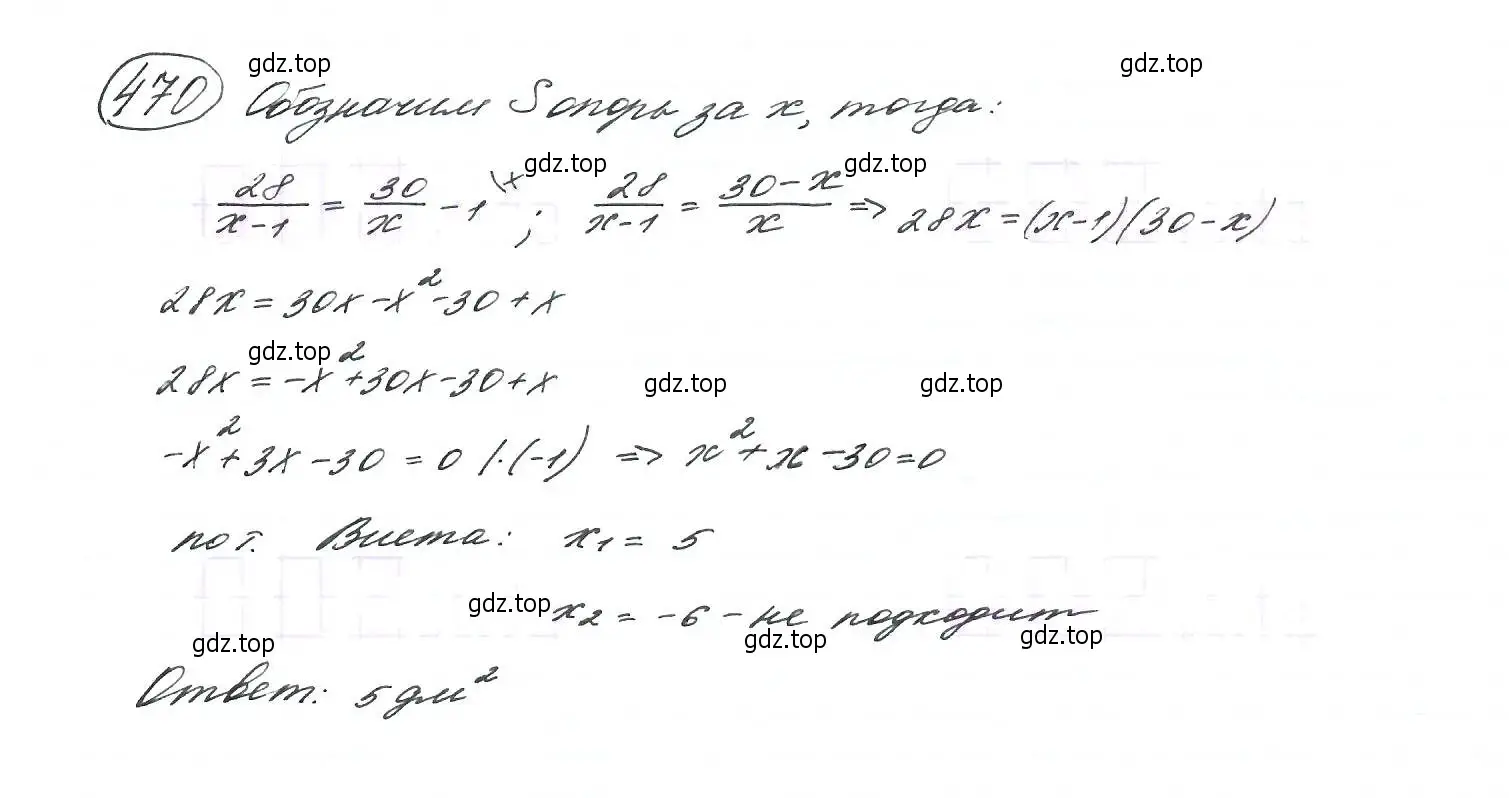 gdz.top gdz.top
470 Обозначим S опоры за x, тогда:
gdz.top gdz.top
28/(x-1) = 30/x - 1 \x ; 28/(x-1) = (30-x)/x => 28x = (x-1)(30-x)
28x = 30x - x² - 30 + x
gdz.top
28x = -x² + 30x - 30 + x
gdz.top gdz.top
-x² + 3x - 30 = 0 /·(-1) => x² + x - 30 = 0
по т. Виета: x₁ = 5
gdz.top x₂ = -6 - не подходит
gdz.top gdz.top gdz.top
Ответ: 5 дм²